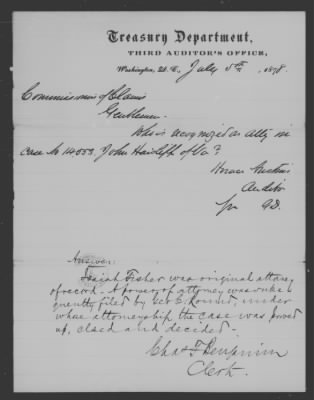 Treasury Department,
THIRD AUDITOR'S OFFICE,
Washington, D.C., July 5th, 1878.
Commissioners of Claims
Gentlemen.
Who is recognized as atty in
case No John of Va?
Horace Austin
Auditor
Answer:
Isaiah Fisher was original attorney
of record. A power of attorney was subse-
quently filed by Geo E. under
whose attorneyship the case was proved
up, closed and decided.-
Chas F Benjamin
Clerk.